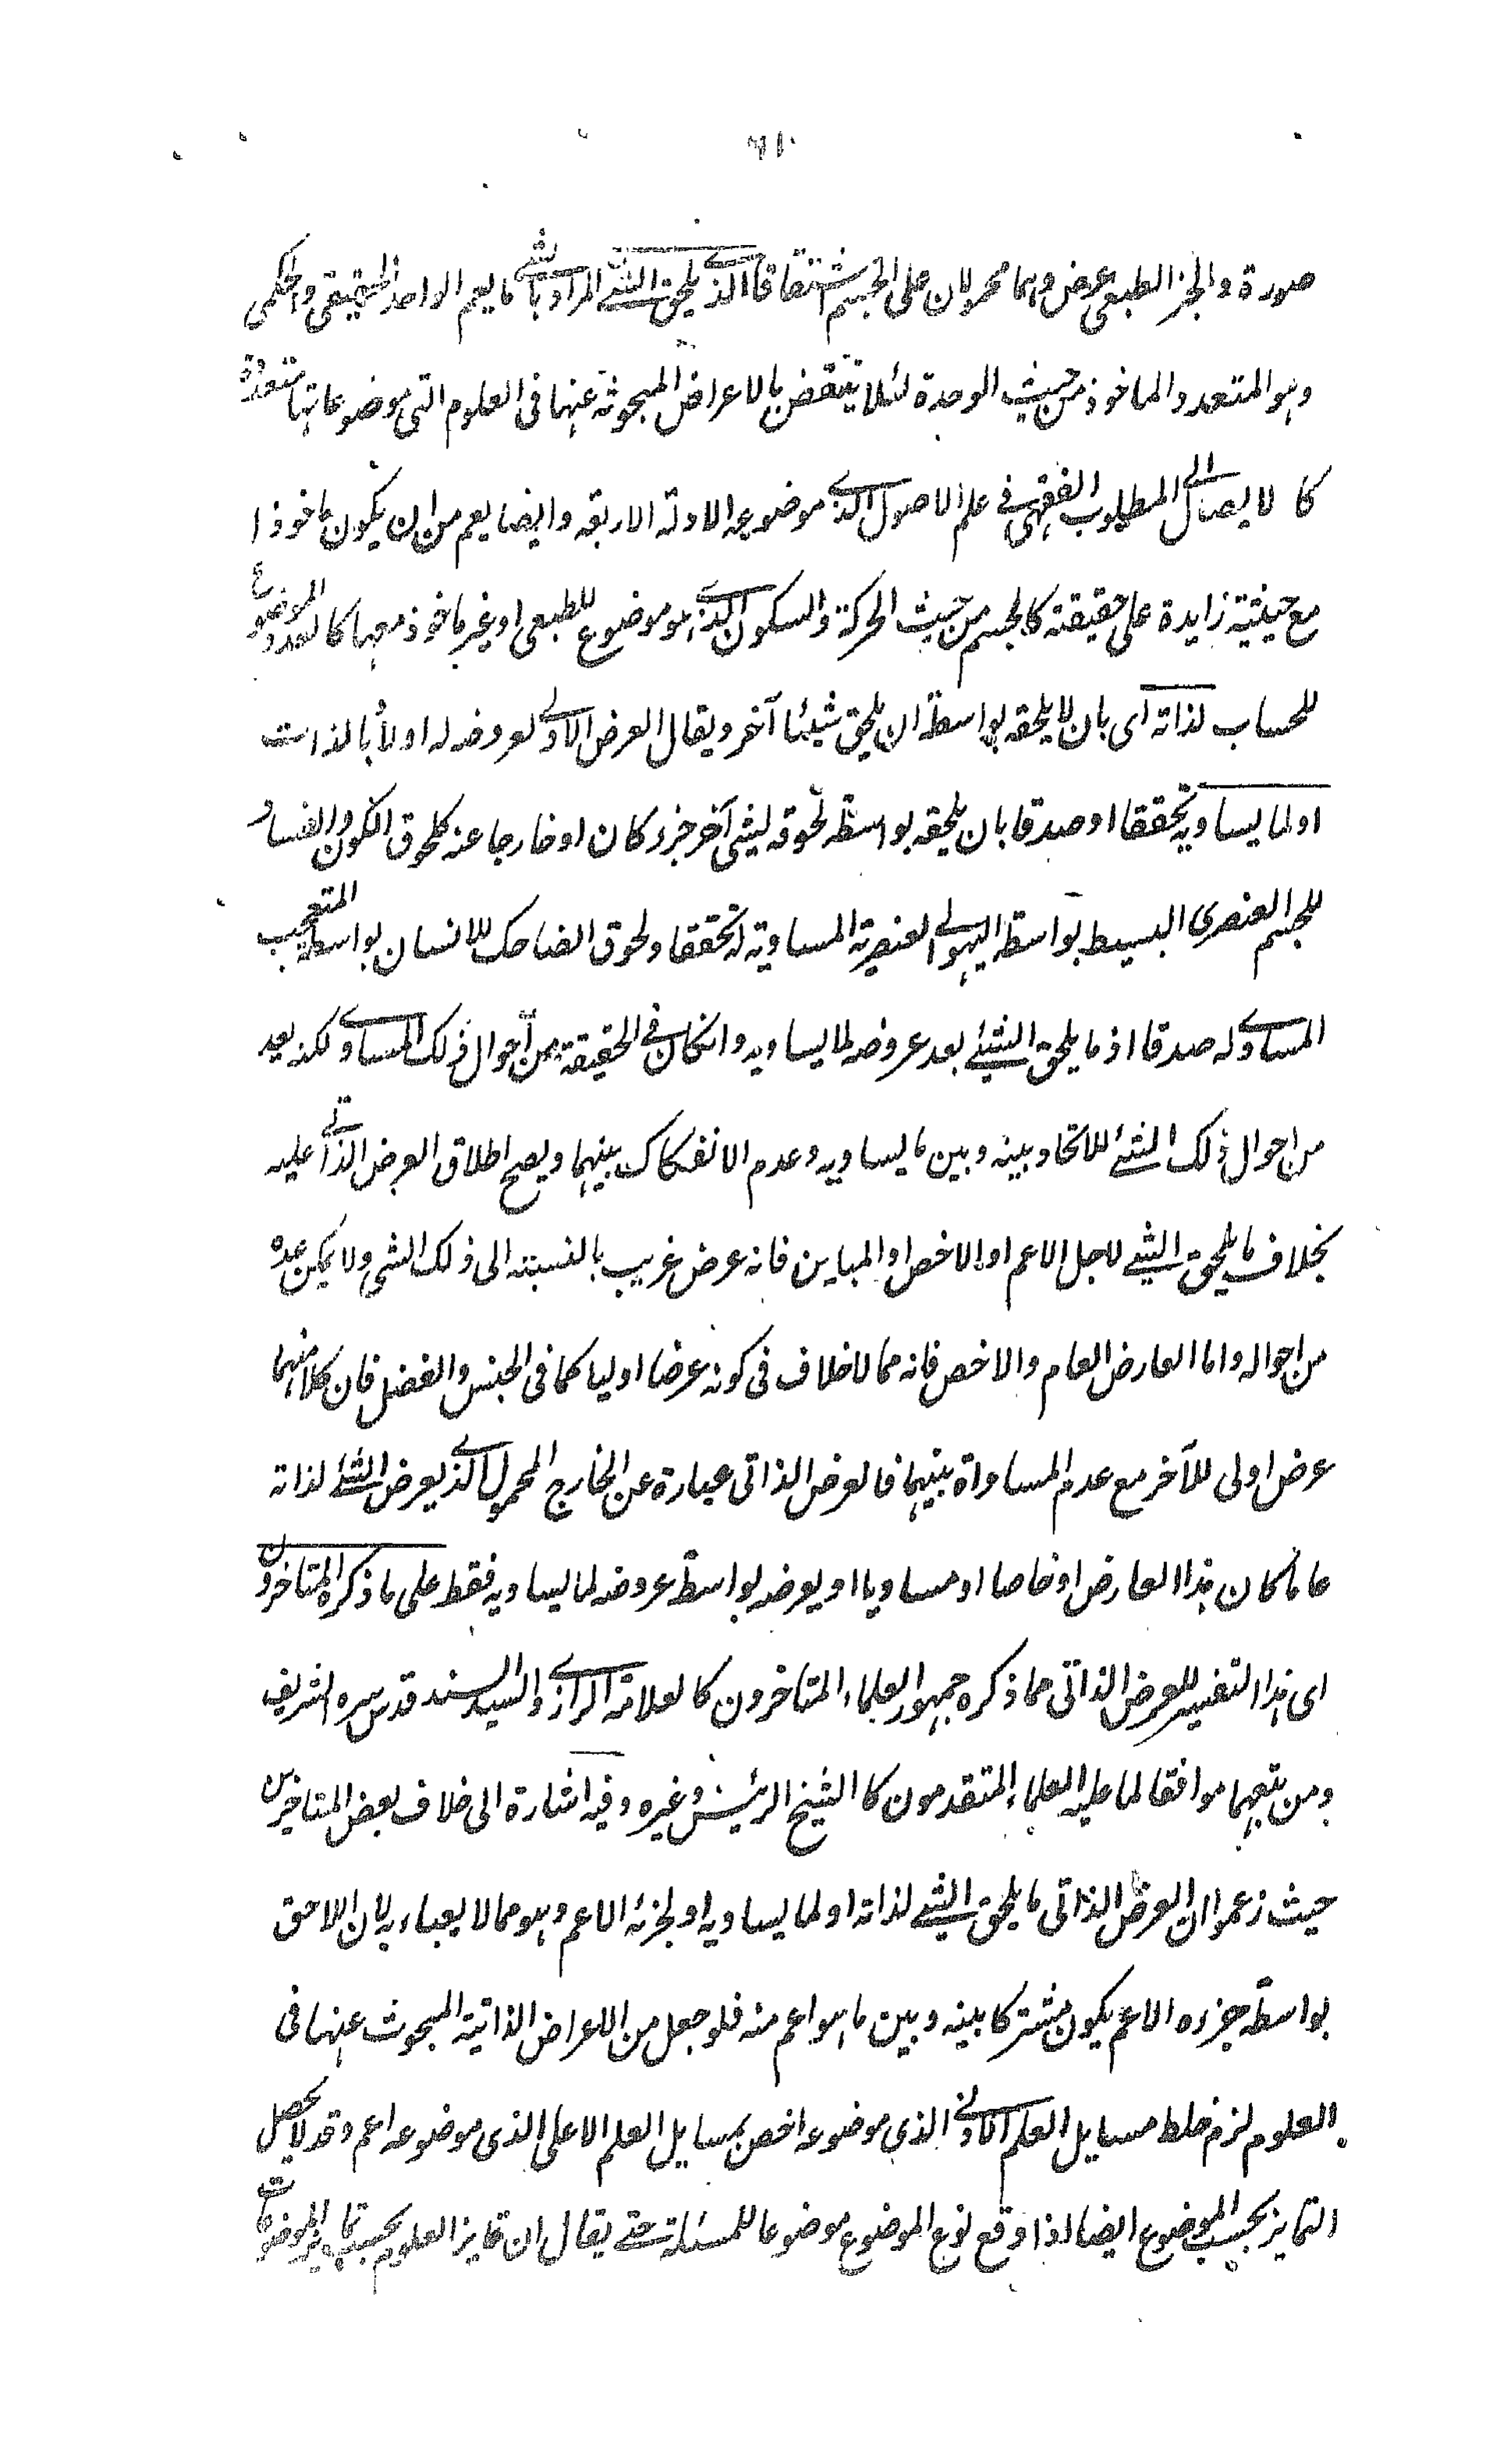 صورة والجزء الطبعى عرض وهما محمولان على الجسم اشتقاقا الذى يلحق الشئ المراد بالشئ ما يعم الواحد الحقيقى والحكمى
وهو المتعدد الماخوذ من حيث الوحدة لئلا ينتقض بالاعراض المبحوثة عنها فى العلوم التى موضوعاتها متعددة
كالايصال الى المطلوب الفقهى فى علم الاصول الذى موضوعه الادلة الاربعة وايضا يعم من ان يكون ماخوذا
مع حيثية زايدة على حقيقته كالجسم من حيث الحركة والسكون الذى هو موضوع للطبعى او غير ماخوذ معها كالعدد الموضوع
للحساب لذاته اى بان لا يلحقه بواسطة ان يلحق شيئا آخر ويقال العرض الاولى لعروضه له اولا بالذات
او لما يساويه تحققا او صدقا بان يلحقه بواسطة لحوقه لشئ آخر جزء كان او خارجا عنه كلحوق الكون والفساد
للجسم العنصرى البسيط بواسطة الهيولى العنصرية المساوية له تحققا ولحوق الضاحك للانسان بواسطة المتعجب
المساوى له صدقا اذ ما يلحق الشئ بعد عروضه لما يساويه وانكان فى الحقيقة من احوال ذلك المساوى ولكنه يعد
من احوال ذلك الشئ للاتحاد بينه وبين ما يساويه وعدم الانفكاك بينهما ويصح اطلاق العرض الذاتى عليه
بخلاف ما يلحق الشئ لاجل الاعم او الاخص او المباين فانه عرض غريب بالنسبته الى ذلك الشى ولا يمكن عده
من احواله واما العارض العام والاخص فانه مما لا خلاف فى كونه عرضا اوليا كما فى الجنس والفصل فان كلا منهما
عرض اولى للآخر مع عدم المساواة بينهما فالعرض الذاتى عبارة عن الخارج المحمول الذى يعرض الشئ لذاته
عاما كان هذا العارض او خاصا او مساويا او يعرضه بواسطة عروضه لما يساويه فقط على ما ذكره المتاخرون
اى هذا التفسير للعرض الذاتى مما ذكره جمهور العلماء المتاخرون كالعلامة الرازى والسيد السند قدس سره الشريف
ومن يتبعهما موافقا لما عليه العلماء المتقدمون كالشيخ الرئيس وغيره وفيه اشارة الى خلاف بعض المتاخرين
حيث زعموا ان العرض الذاتى ما يلحق الشئ لذاته او لما يساويه او لجزئه الاعم وهو مما لا يعباء به لان اللاحق
بواسطة جزءه الاعم يكون مشتركا بينه وبين ما هو اعم منه فلو جعل من الاعراض الذاتية المبحوث عنها فى
العلوم لزم خلط مسايل العلم الادنى الذى موضوعه اخص بمسايل العلم الاعلى الذى موضوعه اعم وقد لا يحصل
التمايز بحسب الموضوع ايضا اذا وقع نوع الموضوع موضوعا للمسئلة حتى يقال ان تمايز العلوم بحسب تمايز الموضوعات